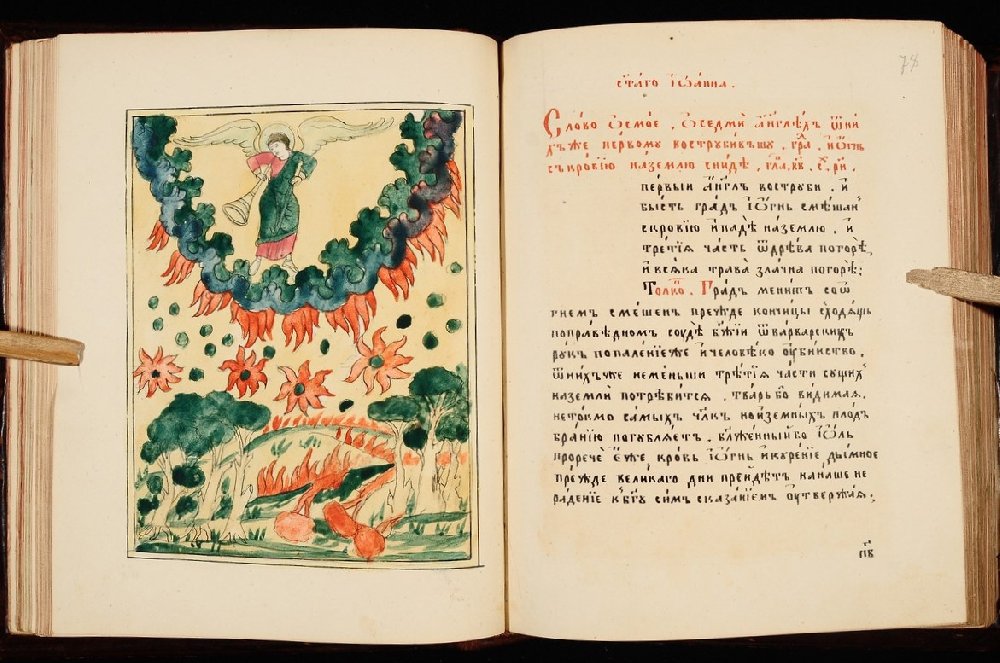 78
ст҃а́го і҆ѡа́нна.
Сло́во ѻ҆смо́е, ѻ҆ седмѝ а҆́нг҃лѣхъ ѿ ни́
хъ же пе́рвому вострꙋби́вшꙋ, гра̀, и҆ ѻ҆́гнь
съ кро́вїю на зе́млю сни́де,
пе́рвый а҆́нг҃лъ вострꙋбѝ. и҆
бы́сть гра́дъ и҆ ѻ҆́гнь смѣ́шан
с кро́вїю и҆ паде́ на зе́млю, и҆
тре́тїѧ ча́сть ѿ дре́ва погорѣ̀,
и҆ всѧ́ка трава̀ зла́чна погорѣ̀;
Толко́. Гра́дъ мени́тъ со ѻ҆
гнем смѣ́шен пре́жде кончи́цы сходѧ́щь
по пра́ведном сꙋдѣ̀ бж҃їи ѿ варварских
рꙋк попале́нїе же и҆ человѣко ᲂу҆бийство.
ѿ ни́хъ же не ме́ньши тре́тїѧ ча́сти сꙋщих
на земли потреби́тсѧ, тва́рь бо ви́димаѧ,
не то́кмо самых члк но и҆ зе́мных плод
бра́нїю погꙋблѧ́етъ. бл҃же́нный бо і҆ѡиль
прорече е҆́же кро́вь и҆ ѻ҆́гнь и҆ кꙋре́нїе ды́мное
пре́жде вели́каго дни прейдетъ, на на́ше не
раде́нїе к бг҃ꙋ сим сказанїем ᲂу҆твержа́ѧ;